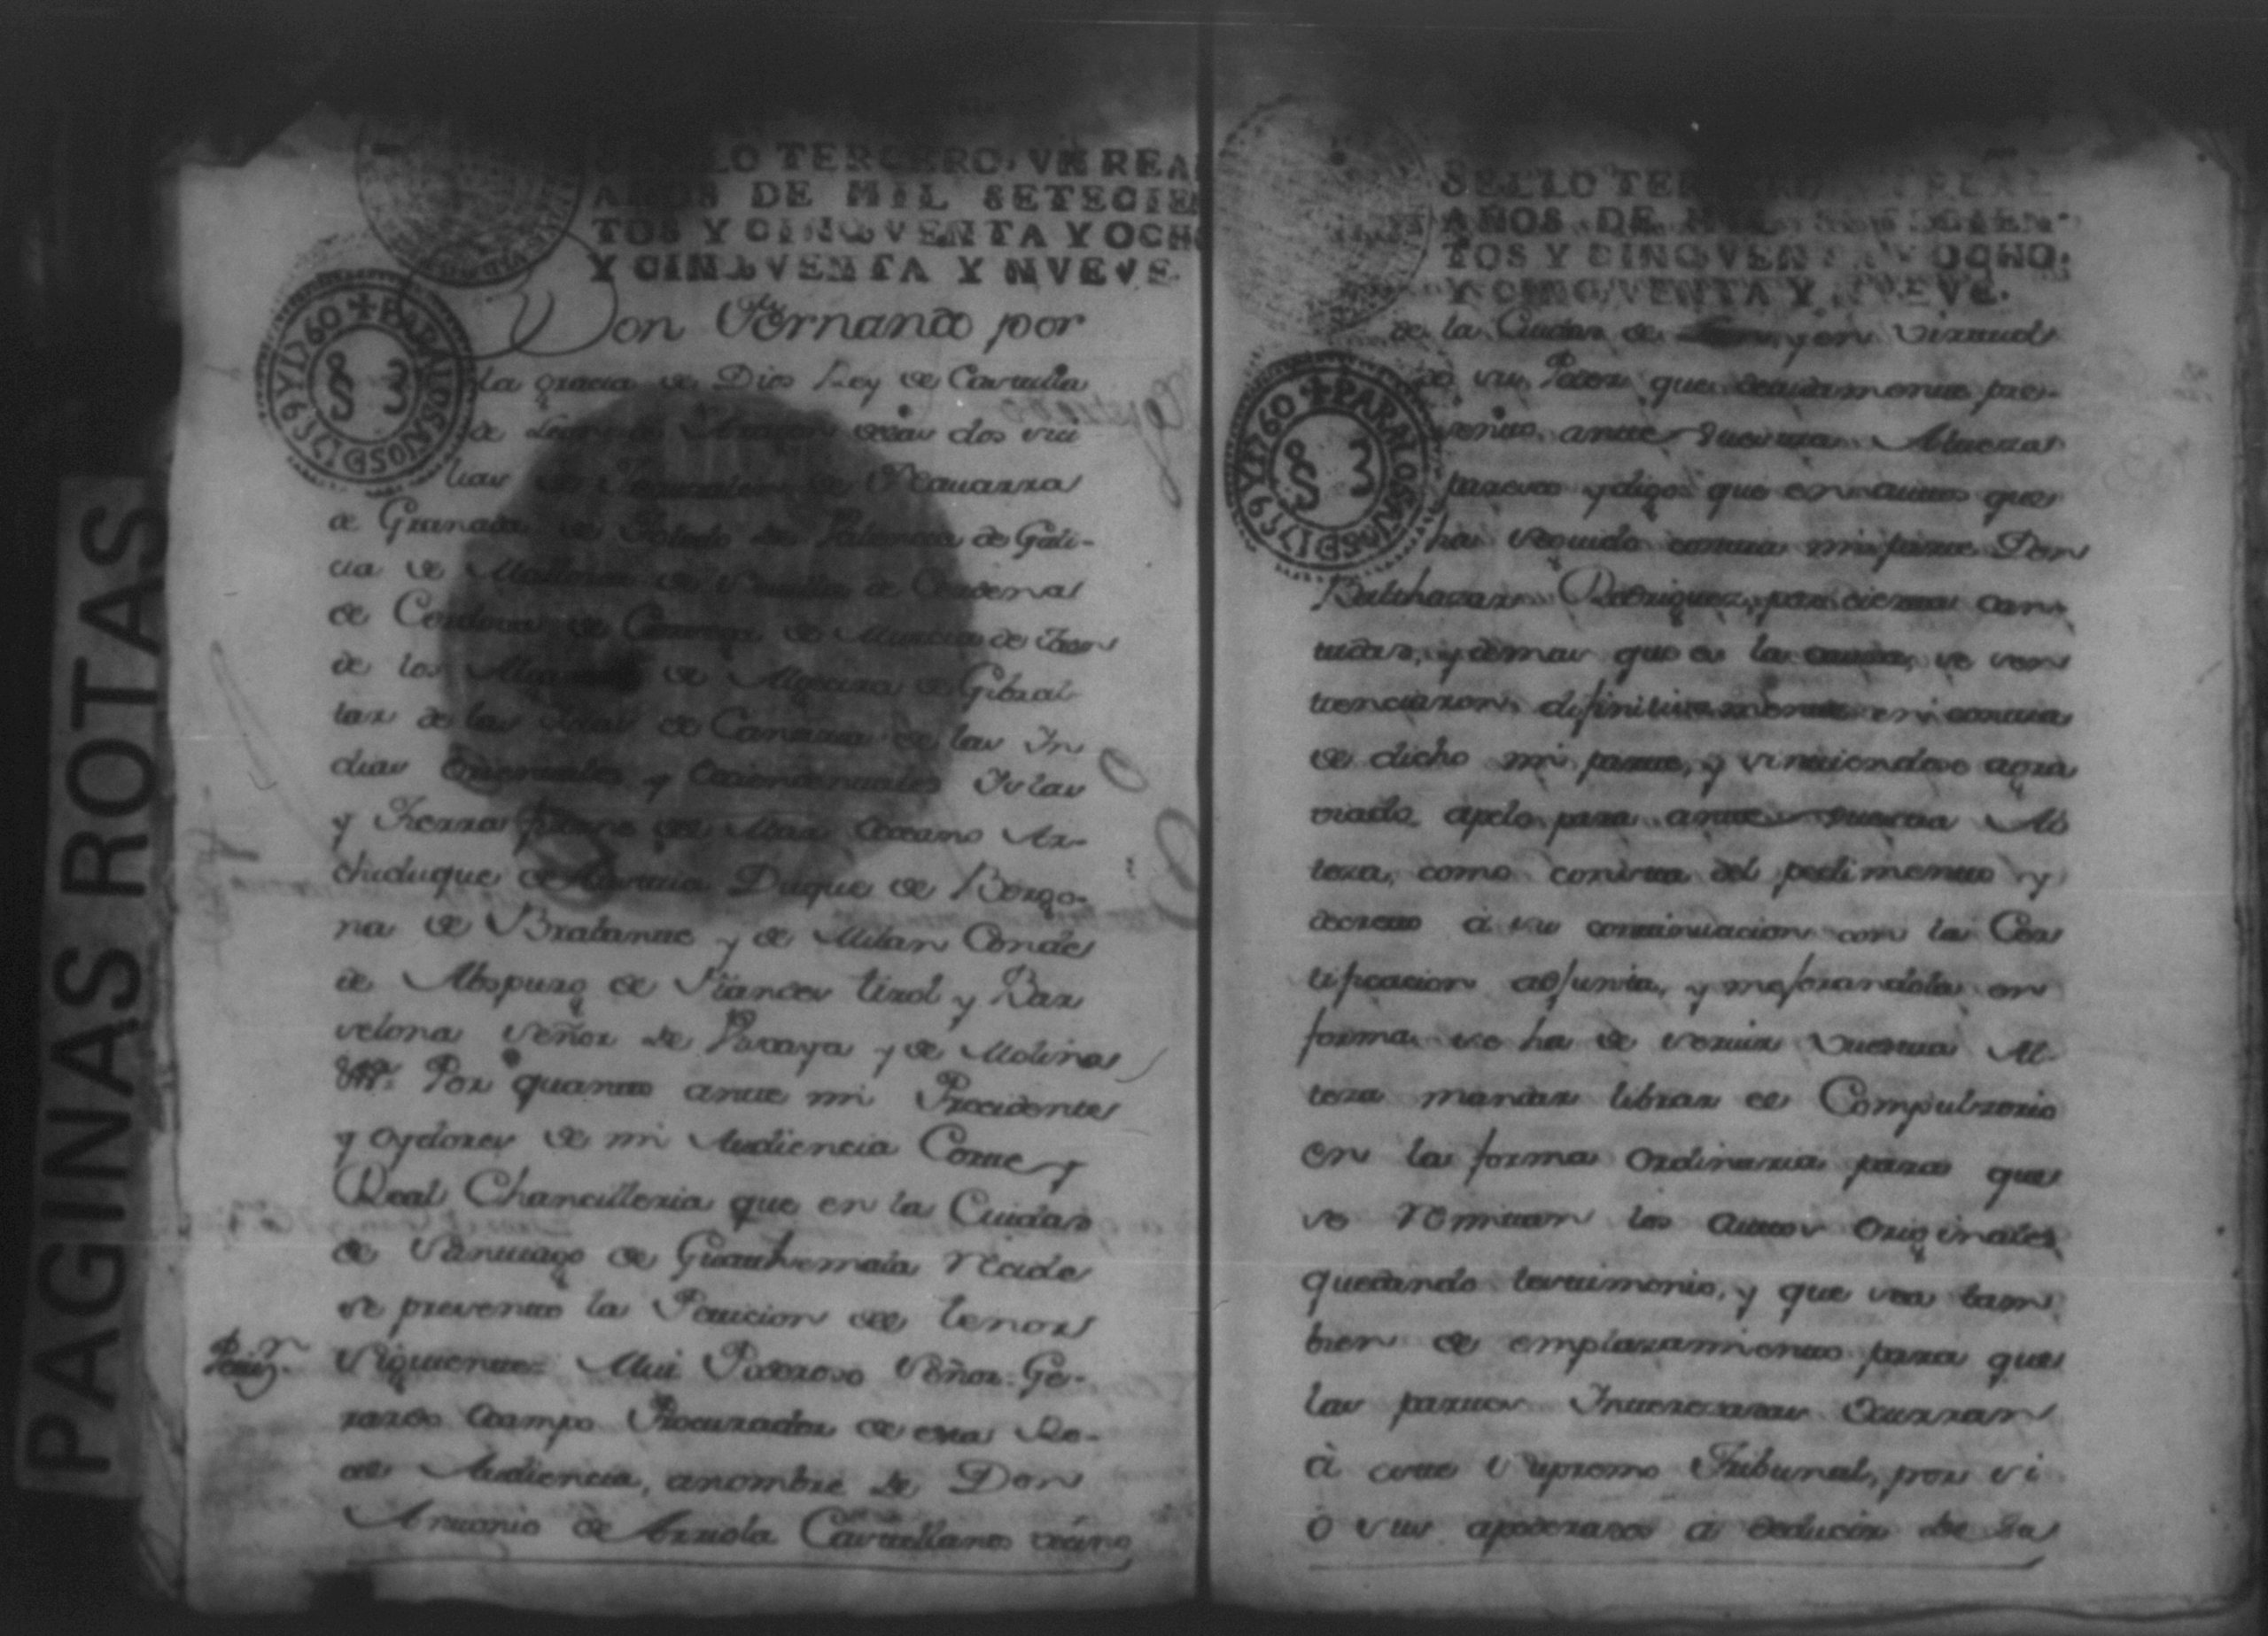 PAGINAS ROTAS
SELLO TERCERO, VN REAL
AÑOS DE MIL SETECIEN
TOS Y CINQVENTA Y OCHO
Y CINQVENTA Y NVEVE
✠ PARA LOS AÑOS DE 1759 Y 1760
SS 3
Don Fernando por
la gracia de Dios Rey de Castilla
de Leon de Aragon de las dos Sici
lias de Jerusalem de Navarra
de Granada de Toledo de Valencia de Gali-
cia de Mallorca de Sevilla de Cerdena
de Cordova de Corcega de Murcia de Jaen
de los Algarves de Algecira de Gibral-
tar de las Islas de Canaria de las In
dias Orientales y Occidentales Islas
y Tierra firme del Mar Occeano Ar-
chiduque de Austria Duque de Borgo-
na de Brabante y de Milan Conde
de Abspurg de Flandes Tirol y Bar
velona Señor de Viscaya y de Molina
&ª. Por quanto ante mi Precidente
y oydores de mi Audiencia Corte y
Real Chancilleria que en la Cuidad
de Santiago de Guathemala recide
se presento la Peticion del tenor
Petiz.n Siguiente= Mui Poderoso Señor= Ge-
rardo Ocampo Procurador de esta Re-
al Audiencia, anombre de Don
Antonio de Arriola Castellanos vecino
SELLO TERCERO VN REAL
AÑOS DE MIL SETECIEN-
TOS Y CINQVENTA Y OCHO.
Y CINQVENTA Y NVEVE.
✠ PARA LOS AÑOS DE 1759 Y 1760
SS 3
de la Ciudad de y en virtud
de su Poder que devidamente pre-
sento, ante Vuestra Alteza
paresco y digo: que en autos que
ha seguido contra mi parte Don
Balthazar Rodriguez, por cierta can-
tidad, y demas que es la causa, se sen
tenciaron, difinitivamente en contra
de dicho mi parte, y sintiendose agra
viado apelo para ante Vuestra Al
teza, como consta del pedimento y
decreto à su continuacion con la Cer
tificacion adjunta, y mejorandola en
forma se ha de servir Vuestra Al-
teza mandar librar el Compulsorio
en la forma Ordinaria para que
se remitan los autos Originales
quedando testimonio, y que sea tam
bien de emplazamiento para que
las partes Interesadas Ocurran
à este Supremo Tribunal, por si
ò sus apoderados à deducir de su